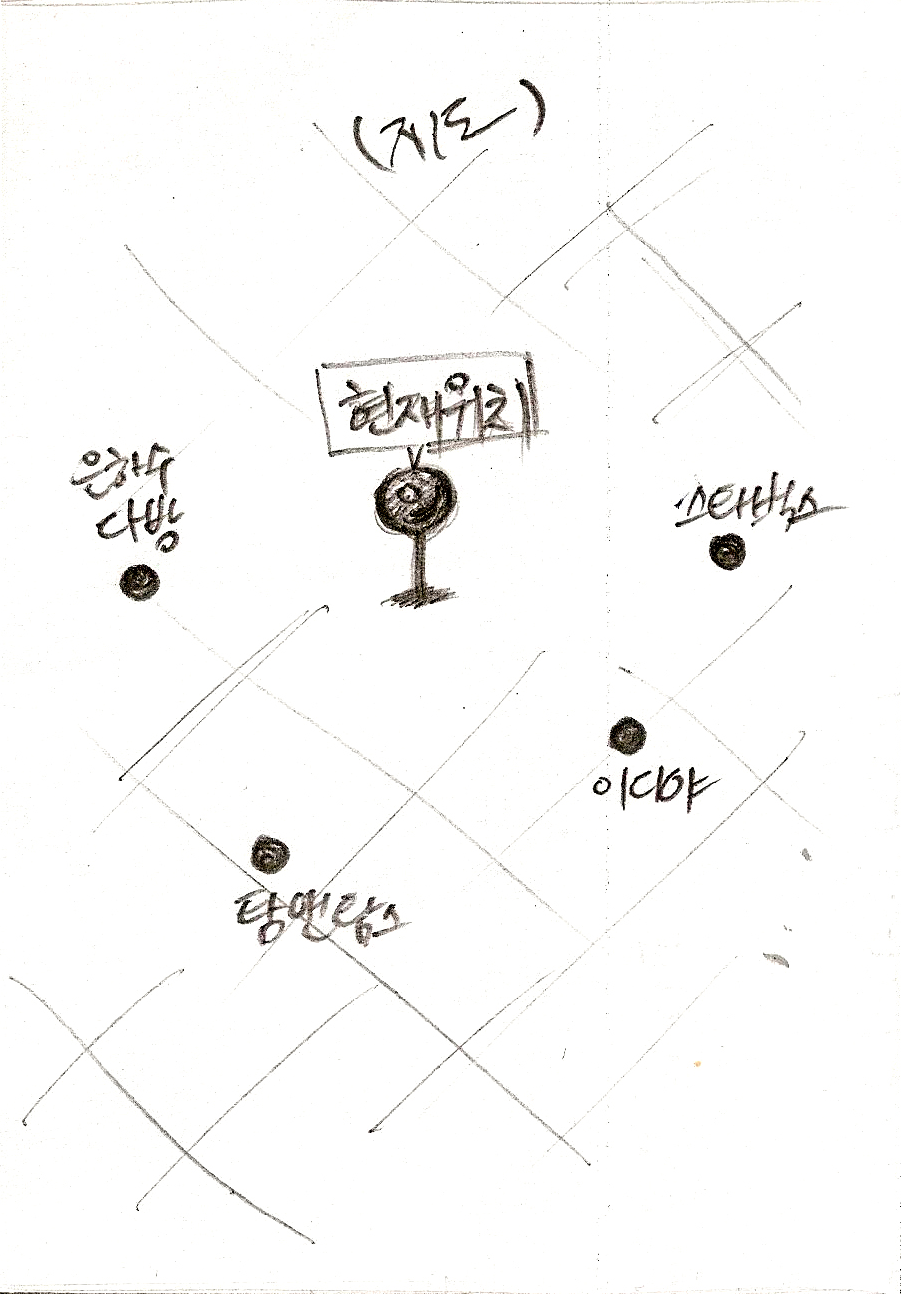 (지도)
현재위치
은하수
다방
스타벅스
이디야
탐앤탐스